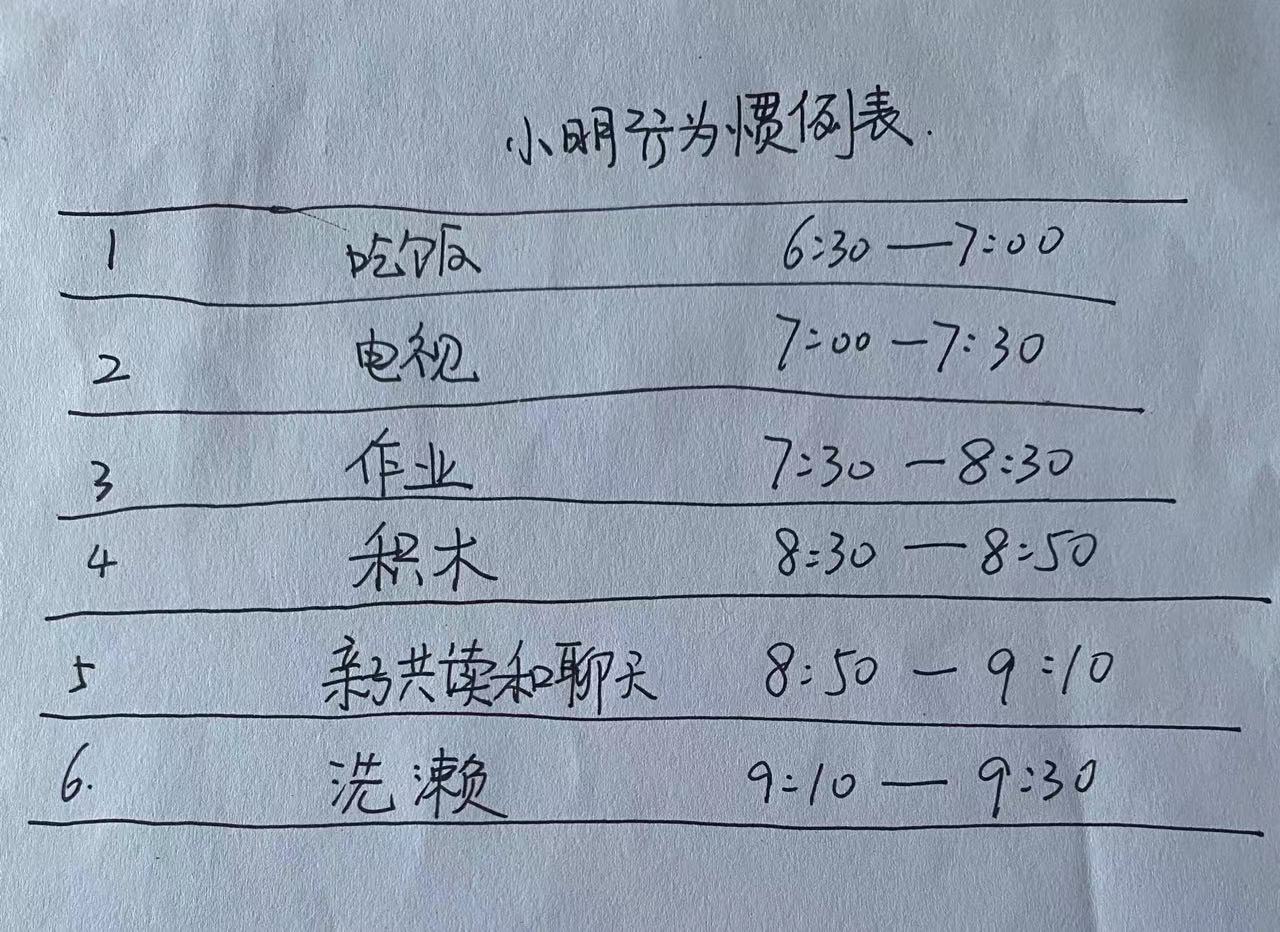 小明行为惯例表.
1 吃饭 6:30—7:00
2 电视 7:00—7:30
3 作业 7:30—8:30
4 积木 8:30—8:50
5 亲子共读和聊天 8:50—9:10
6. 洗濑 9:10—9:30